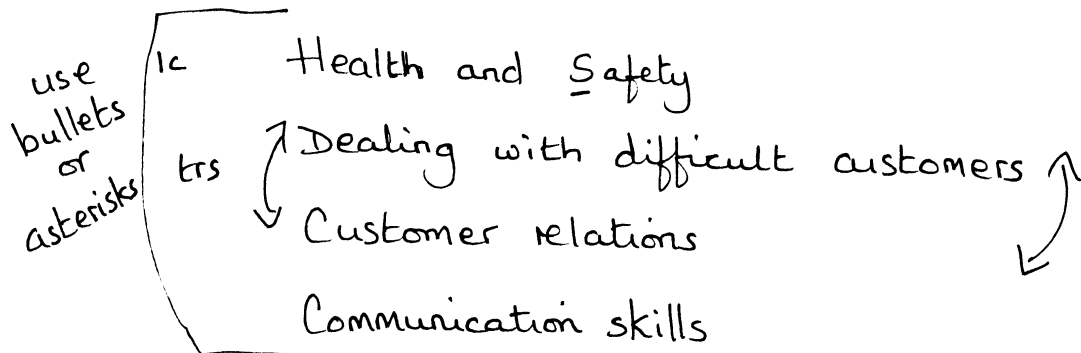 use
bullets
or
asterisks
lc Health and Safety
trs Dealing with difficult customers
Customer relations
Communication skills